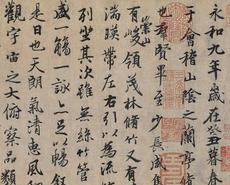 永和九年歲在癸丑暮春
于會稽山陰之蘭亭脩
也群賢畢至少長咸集
崇山
有峻領茂林脩竹又有
湍暎帶左右引以為流
列坐其次雖無絲竹管
盛一觴一詠亦足以暢敘
是日也天朗氣清惠風和
觀宇宙之大俯察品類